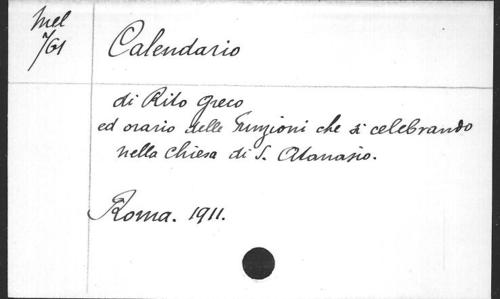 Mel
7/61
Calendario
di Rito greco
ed orario delle Funzioni che si celebrando
nella Chiesa di S. Atanasio.
Roma. 1911.